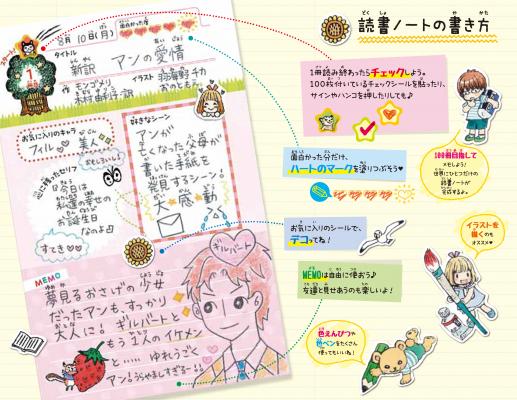 スタート!
8月10日(月)
面白かった度
タイトル
新訳 アンの愛情
作 モンゴメリ
木村由利子 訳
イラスト 羽海野チカ
おのともえ
1冊目
お気に入りのキャラ
フィル
美人
おもしろいし!
好きなシーン
アンが
亡くなった父母が
書いた手紙を
発見するシーン!
大感動
心に残ったセリフ
今日は
私達の幸せの
お誕生日
なのよ
すてき
ギルバート
MEMO
夢見るおさげの少女
だったアンも、すっかり
大人に! ギルバートと
もう1人のイケメン
と…… ゆれうごく
アン! うらやましすぎる…!!
どくしょ か かた
読書ノートの書き方
1冊読み終わったらチェックしよう。
100枚付いているチェックシールを貼ったり、
サインやハンコを押したりしても♪
面白かった分だけ、
ハートのマークを塗りつぶそう♥
100冊目指して
メモしよう!
世界にひとつだけの
読書ノートが
完成するよ。
お気に入りのシールで、
デコってね!
イラストを
描くのも
オススメ♥
MEMOは自由に使おう♪
友達と見せあうのも楽しいよ!
色えんぴつや
色ペンをたくさん
使ってもいいね!